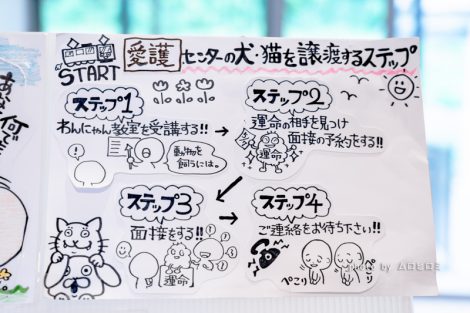 愛護センターの犬・猫を譲渡するステップ
START
ステップ1
わんにゃん教室を受講する!!
動物を
飼うには。
ステップ2
運命の相手を見つけ
面接の予約をする!!
運命
ステップ3
面接をする!!
運命
ステップ4
ご連絡をお待ち下さい!!
ぺこり
ぺこり